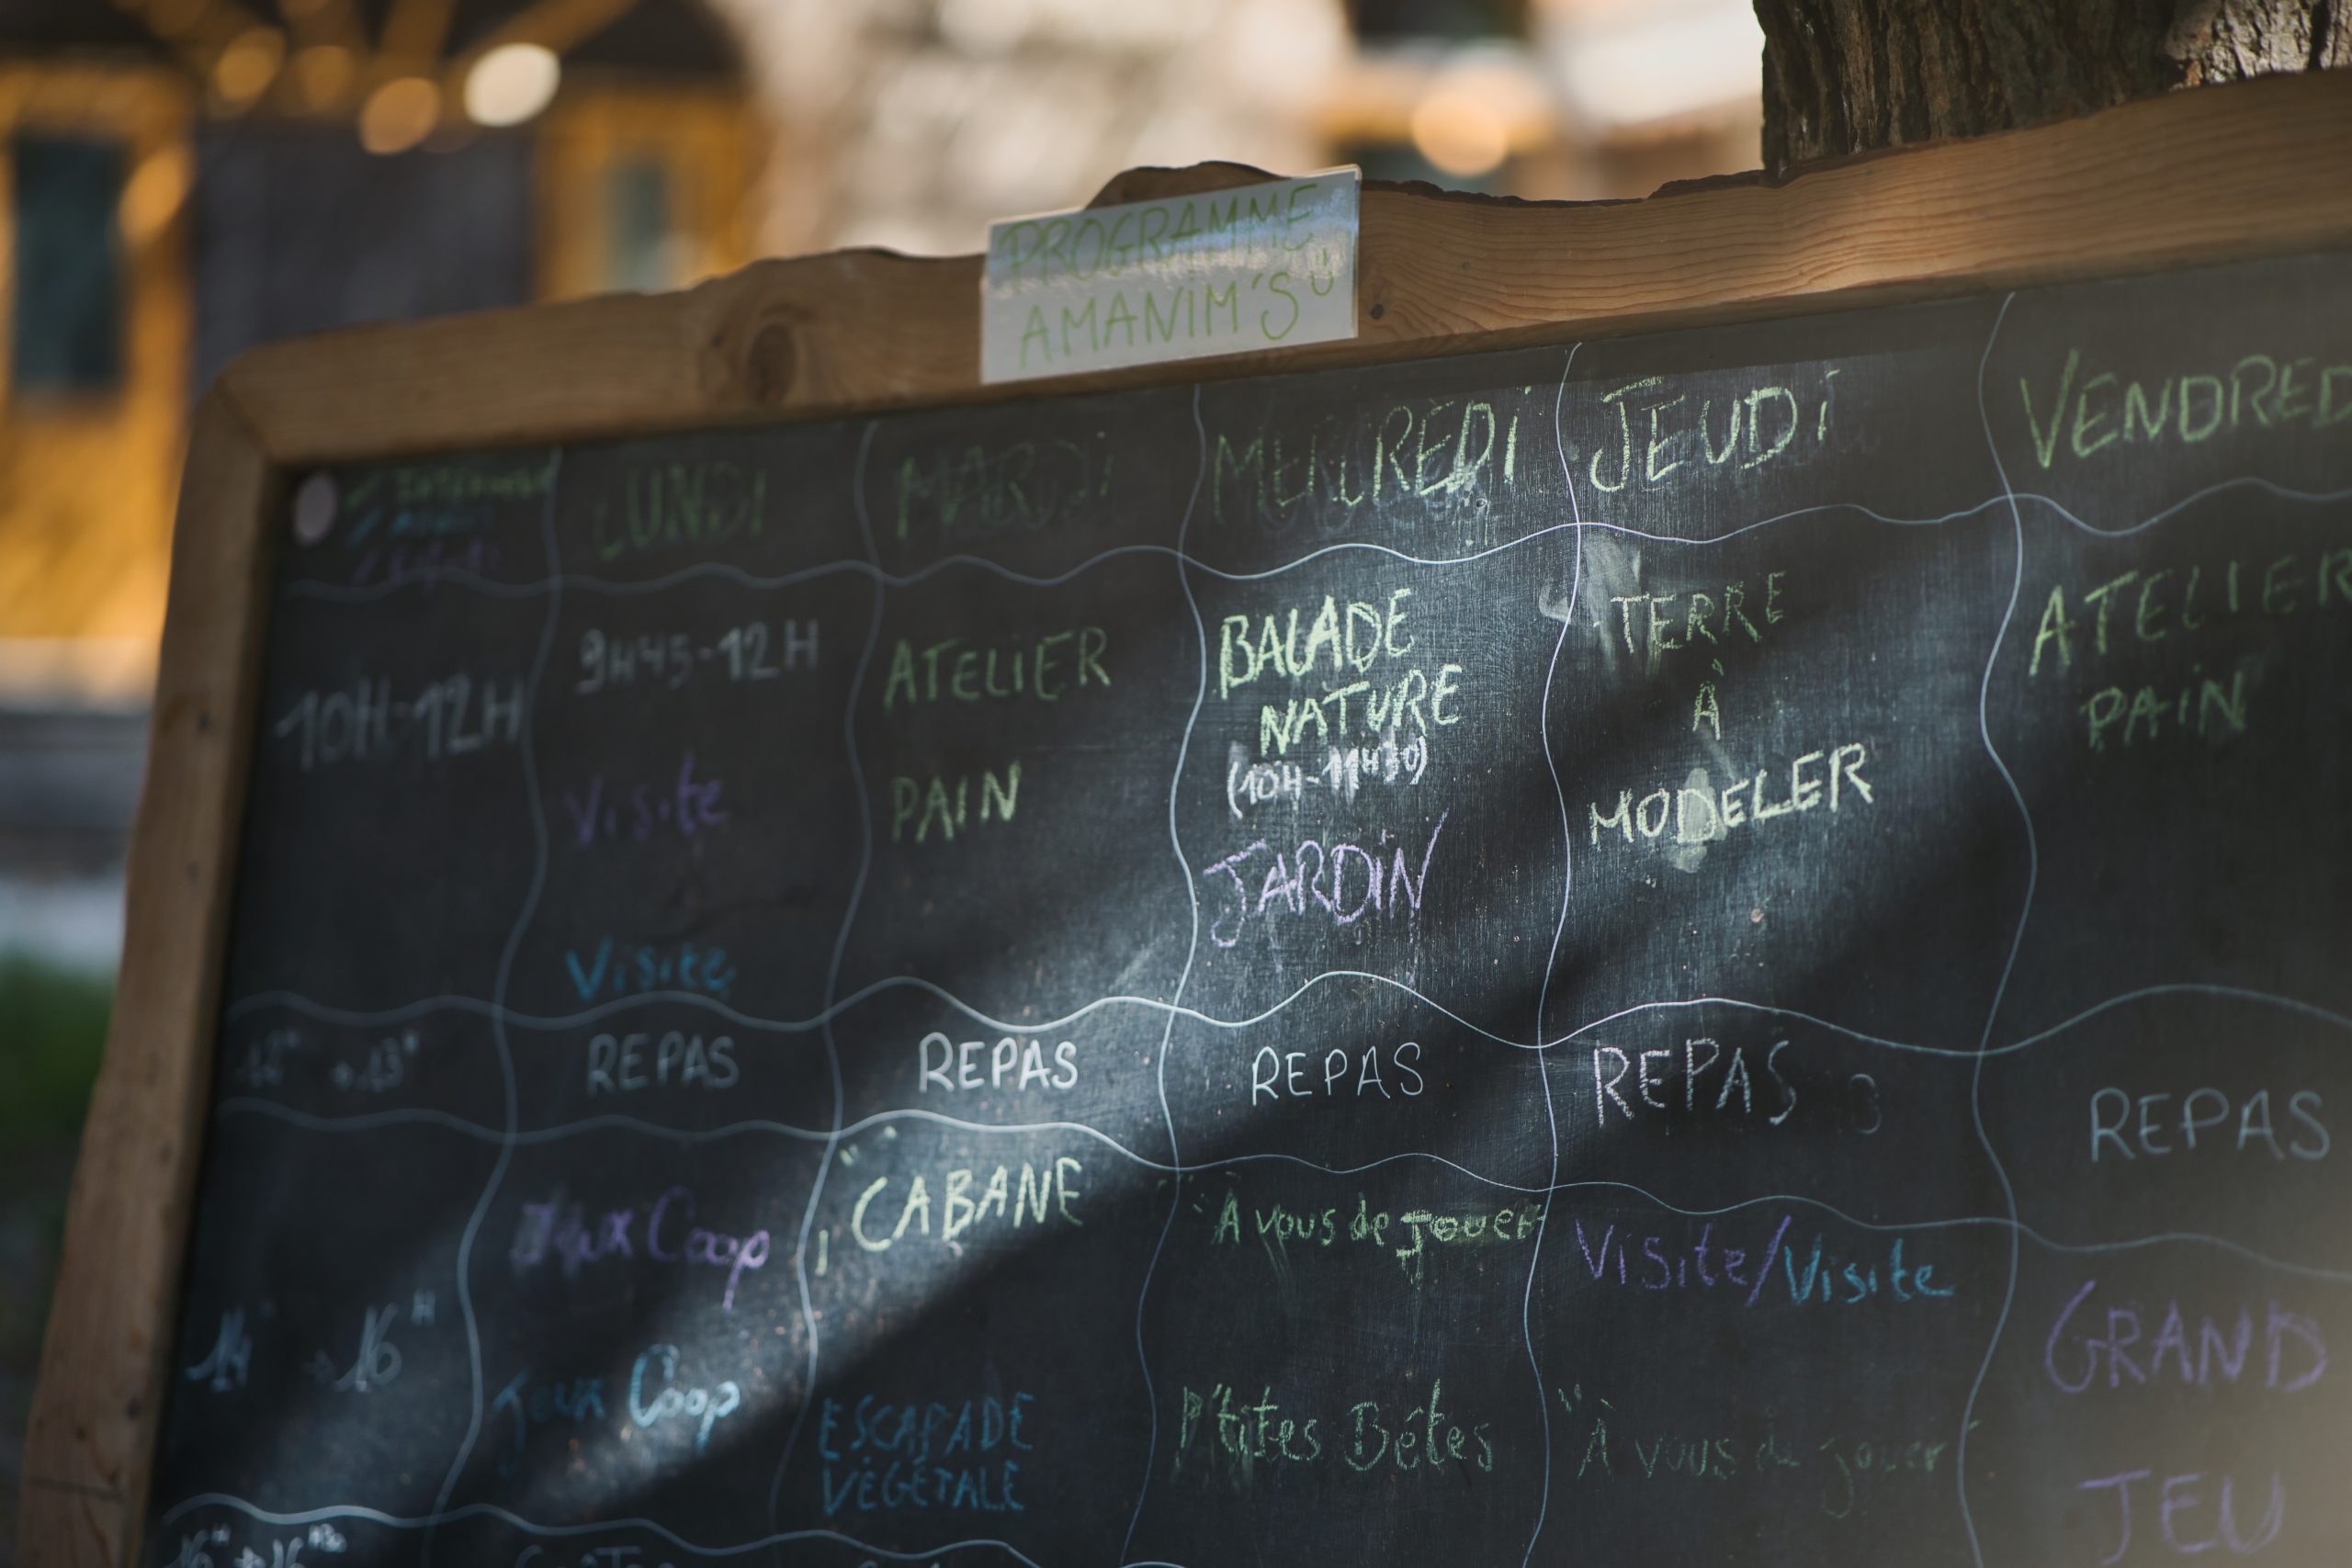 PROGRAMME
AMANiM'S
LUNDI
MARDi
MERCREDi
JEUDi
VENDRED
10H-12H
9H45-12H
Visite
Visite
ATELiER
PAiN
BALADE
NATURE
(10H-11H30)
JARDiN
TERRE
À
MODELER
ATELIER
PAiN
REPAS
REPAS
REPAS
REPAS
REPAS
14 → 16H
Jeux Coop
Jeux Coop
CABANE
ESCAPADE
VÉGÉTALE
"À vous de jouer
P'tites Bêtes
Visite/Visite
"À vous de jouer"
GRAND
JEU